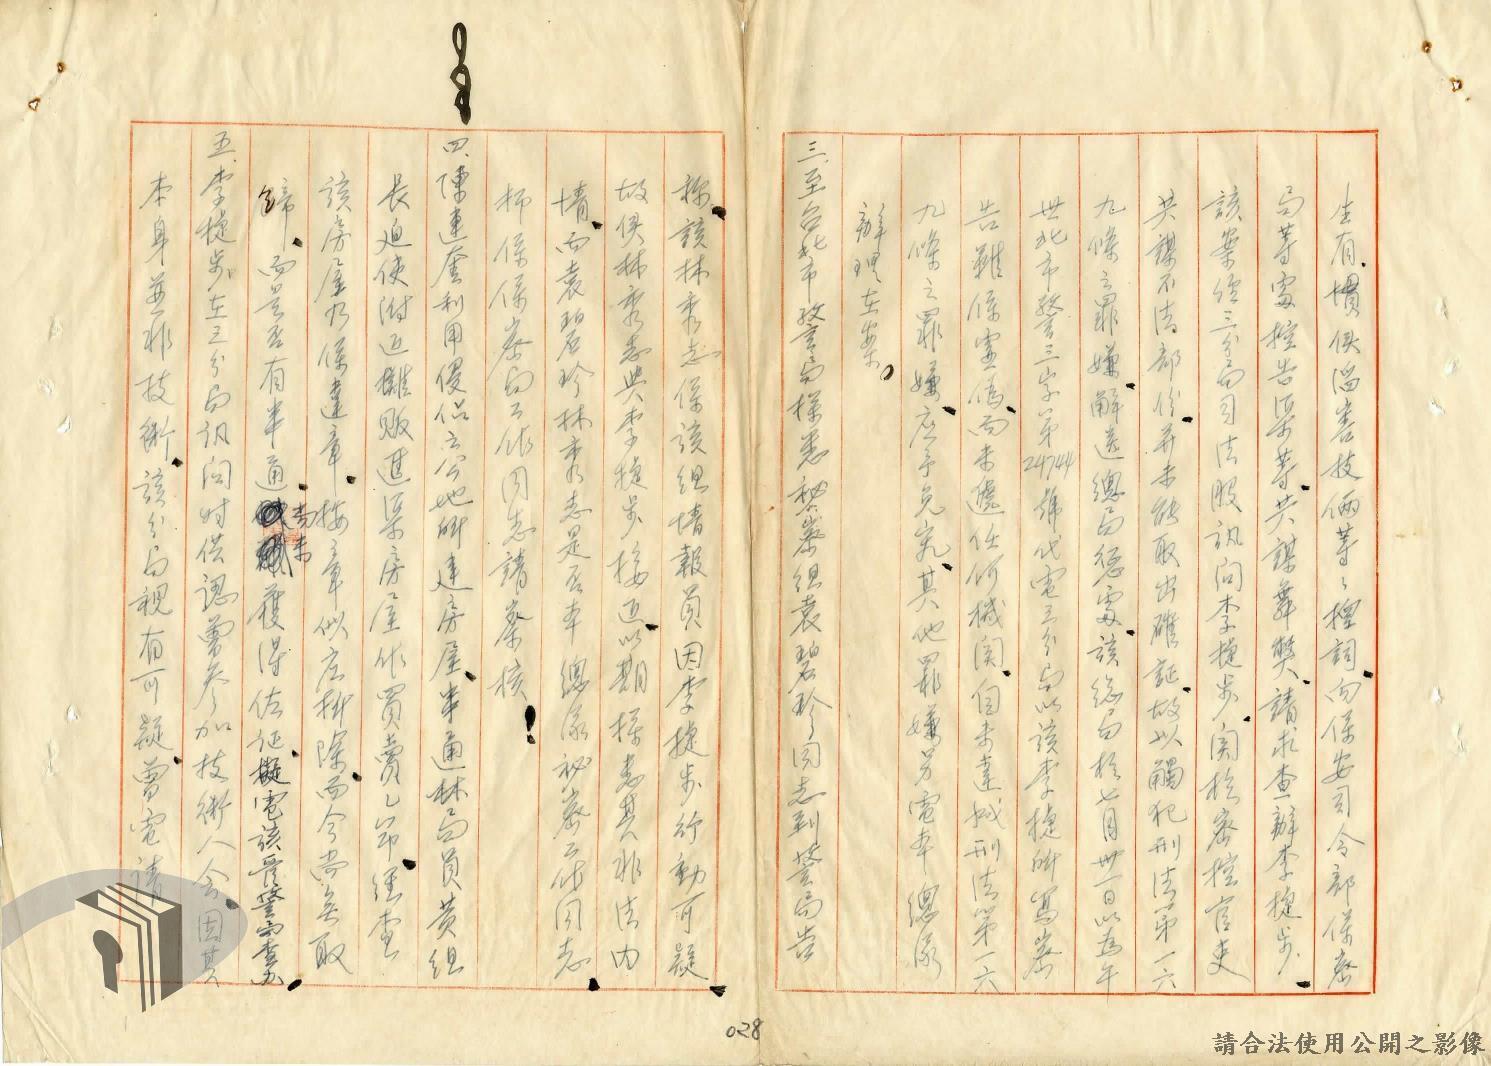 生有慣俱湽害技倆等々種詞向保安司令部保密
局等處控告渠等共謀舞弊請求查辦李捷步
該案經三分局司法股訊問李捷步関於密控官吏
共謀不法部份并未能取出確証故以觸犯刑法第一六
九條之罪嫌解送總局懲處該總局於七月卅一日以為午
世北市警三字第24744號代電三分局以該李捷步所寫密
告雖係虛偽而未遞任何機関自未達成刑法第一六
九條之罪嫌應予免究其他罪嫌另電奉總隊
辦理在案
三、至台北市警局據悉秘密組袁碧珍同志到警局告
稱該林秀志係該組情報員因李捷步行動可疑
故使林秀志與李捷步接近以期探悉其非法內
情而袁碧珍林秀志是否奉總隊秘密工作同志
抑係保密局工作同志請鑒核
四、陳建奎利用侵佔之公地所建房屋串通林局員黃組
長迫使附近攤販湛渠房屋作買賣乙節經查
該房屋乃係違章按章似应拆除而今尚無取
締而是否有串通尚未獲得佐証擬電該管警局查办
五、李捷步在三分局訊問时供認曾參加技術人会因其
本身並非技術該分局視有可疑曾電請
028
請合法使用公開之影像